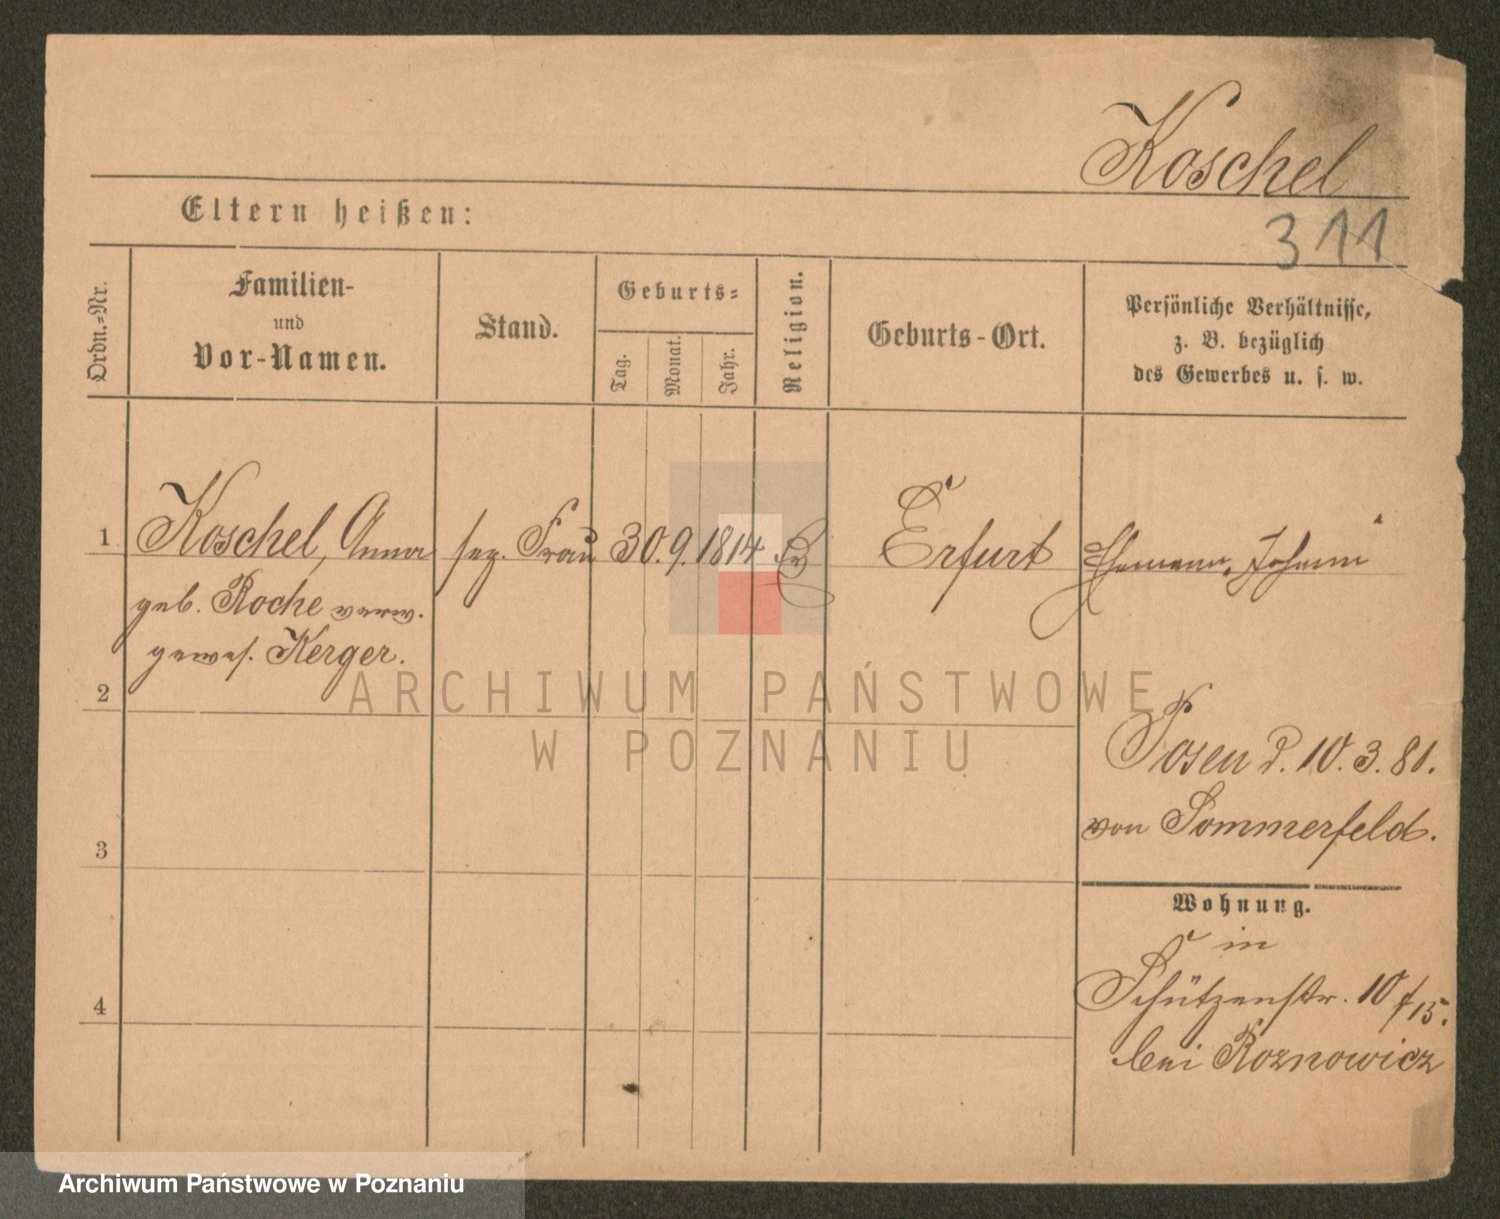 Koschel
Eltern heißen:
311
Ordn.-Nr.
Familien-
und
Vor-Namen.
Stand.
Geburts-
Tag.
Monat.
Jahr.
Religion.
Geburts-Ort.
Persönliche Verhältnisse,
z. B. bezüglich
des Gewerbes u. s. w.
1
Koschel, Anna
geb. Roche verw.
gewes. Kerger.
Frau
30. 9. 1814
Ev
Erfurt
Ehemann, Johann
2
Posen d. 10. 3. 81.
von Sommerfeld.
3
Wohnung.
in
Schützenstr. 10/15.
bei Roznowicz
4
ARCHIWUM PAŃSTWOWE
W POZNANIU
Archiwum Państwowe w Poznaniu